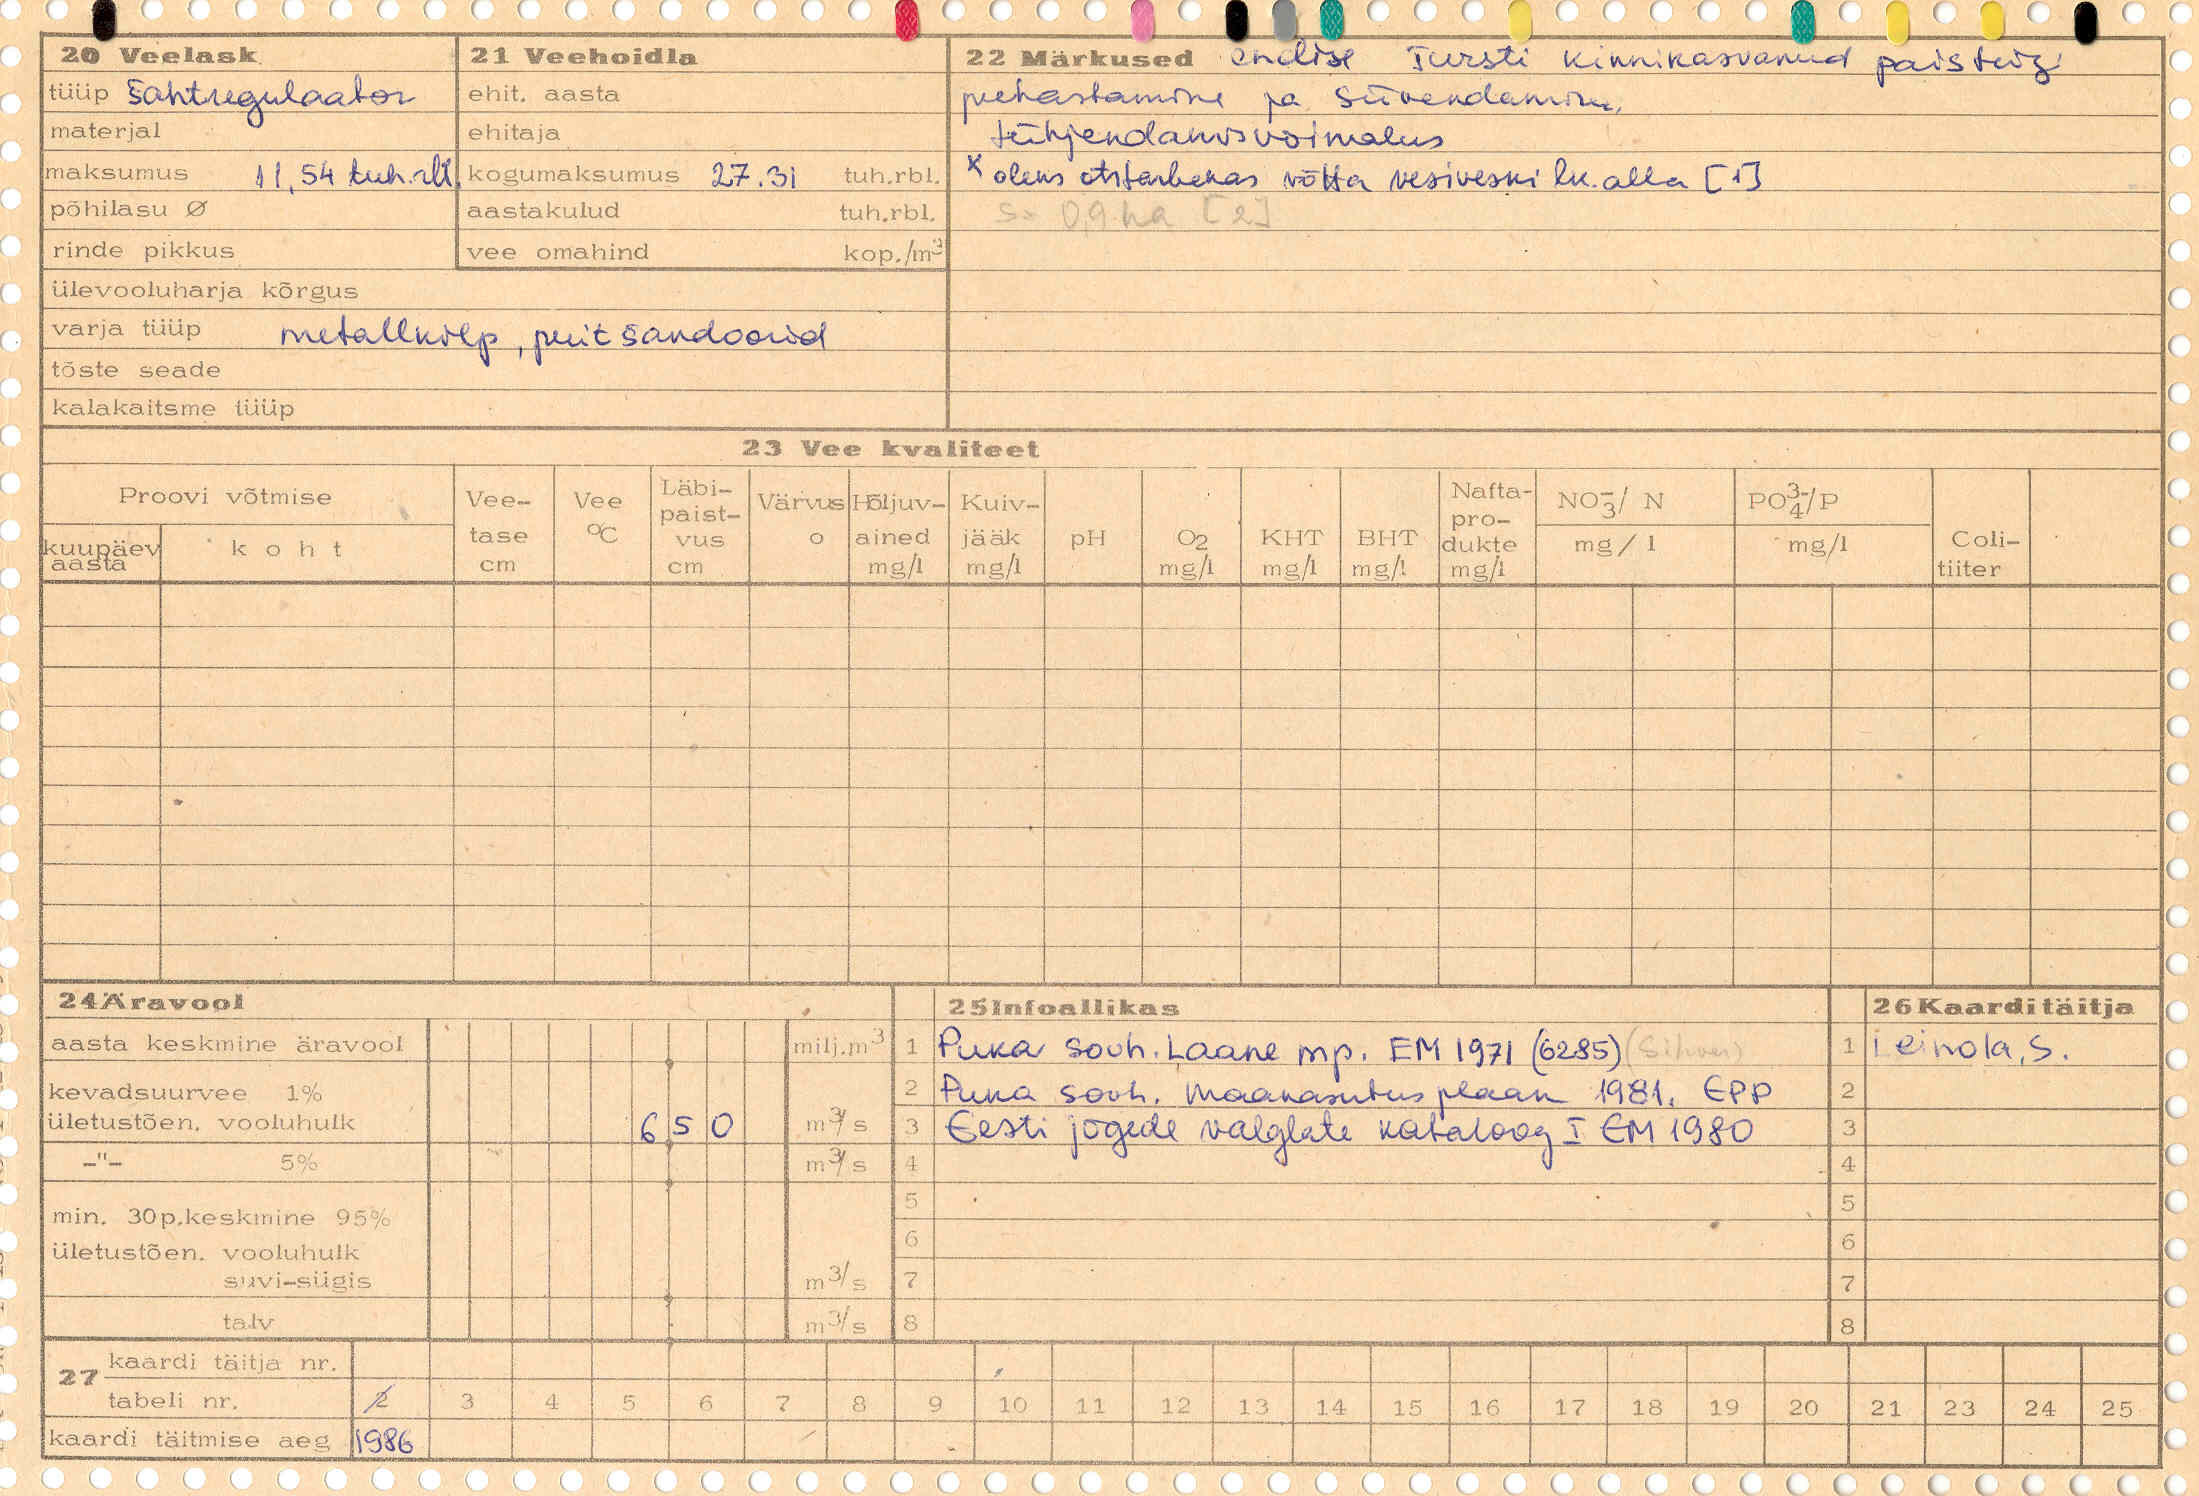 20 Veelask
tüüp šahtregulaator
materjal
maksumus 11,54 tuh.rbl.
põhilasu Ø
rinde pikkus
ülevooluharja kõrgus
varja tüüp metallkilp, puitšandoorid
tõste seade
kalakaitsme tüüp
21 Veehoidla
ehit. aasta
ehitaja
kogumaksumus 27.31 tuh.rbl.
aastakulud tuh.rbl.
vee omahind kop./m³
22 Märkused endise Tursti kinnikasvanud paistiigi
puhastamine ja süvendamine,
tühjendamisvõimalus
x oleks otstarbekas võtta vesiveski lk. alla [1]
S= 0,9 ha [2]
23 Vee kvaliteet
Proovi võtmise
kuupäev aasta
koht
Vee-tase cm
Vee °C
Läbi-paist-vus cm
Värvus o
Hõljuv-ained mg/l
Kuiv-jääk mg/l
pH
O2 mg/l
KHT mg/l
BHT mg/l
Nafta-pro-dukte mg/l
NO3-/ N mg/l
PO4 3-/P mg/l
Coli-tiiter
24 Äravool
aasta keskmine äravool milj.m³
kevadsuurvee 1%
ületustõen. vooluhulk 6 5 0 m³/s
-"- 5% m³/s
min. 30p.keskmine 95%
ületustõen. vooluhulk
suvi-sügis m³/s
talv m³/s
25 Infoallikas
1 Puka sovh. Laane mp. EM 1971 (6285)
2 Puka sovh. maakasutusplaan 1981. EPP
3 Eesti jõgede valglate kataloog I EM 1980
4
5
6
7
8
26 Kaarditäitja
1 Leinola, S.
2
3
4
5
6
7
8
27 kaardi täitja nr.
tabeli nr. 2 3 4 5 6 7 8 9 10 11 12 13 14 15 16 17 18 19 20 21 23 24 25
kaardi täitmise aeg 1986